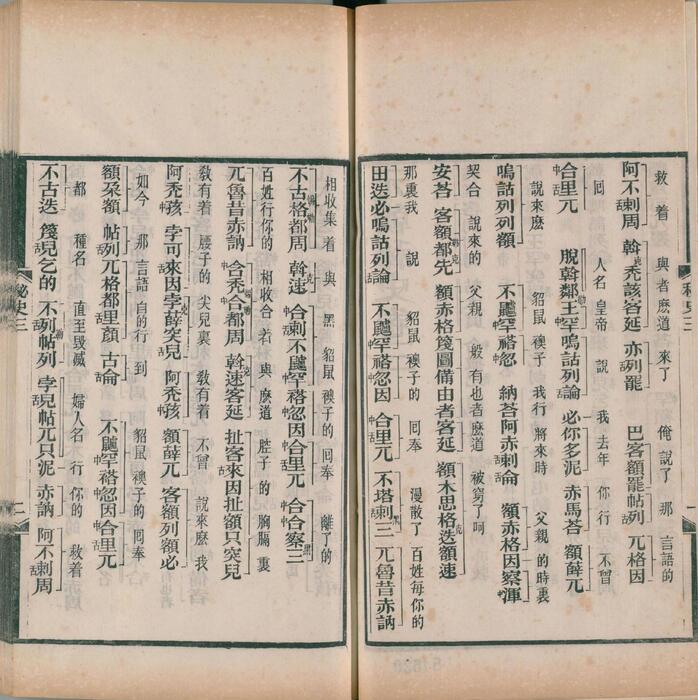 救着 與者麽道 來了 俺說了 那 言語的
阿不剌周 斡禿該咨延 亦列罷 巴客額罷帖列 兀格因
回 人名皇帝 說 我去年 你行 不曾
合里兀 脫斡鄰王罕嗚詁列論 必你多泥 赤馬荅 額薛兀
說來麽 貂鼠 襖子 我行 將來時 父親 的時裏
嗚詁列列額 不黸罕褡忽 納荅阿赤剌論 額赤格因察渾
契合 說來的 父親 般有也者麽道 被窮了呵
安荅 客額都先 額赤格篾圖備由者客延 額木思格迭額速
那裏我 說 貂鼠 襖子的 回奉 漫散了 百姓每你的
田迭必嗚詁列論 不黸罕褡忽因 合里兀 不塔剌三 兀魯昔赤訥
相收集着 與 黑 貂鼠 襖子的 回奉 離了的
不古格都周 斡速 合剌不黸罕褡忽因合里兀 合合察三
百姓行你的 相收合着 與麽道 腔子的 胸膈裏
兀魯昔赤訥 合禿合都周 斡速客延 扯客來因扯額只突兒
敎有着 腰子的 尖兒裏 敎有着 不曾 說來麽 我
阿禿孩 孛可來因孛薛突兒 阿禿孩 額薛兀 客額列額必
如今 那言語自的行 到 貂鼠 襖子的 回奉
額朶額 帖列兀格都里顏 古侖 不黸罕褡忽因合里兀
都 種名 直至毀滅 婦人名 行 你的 救着
不古迭 篾兒乞的 不列帖列 孛兒帖兀只泥 赤訥 阿不剌周
祕史三
二